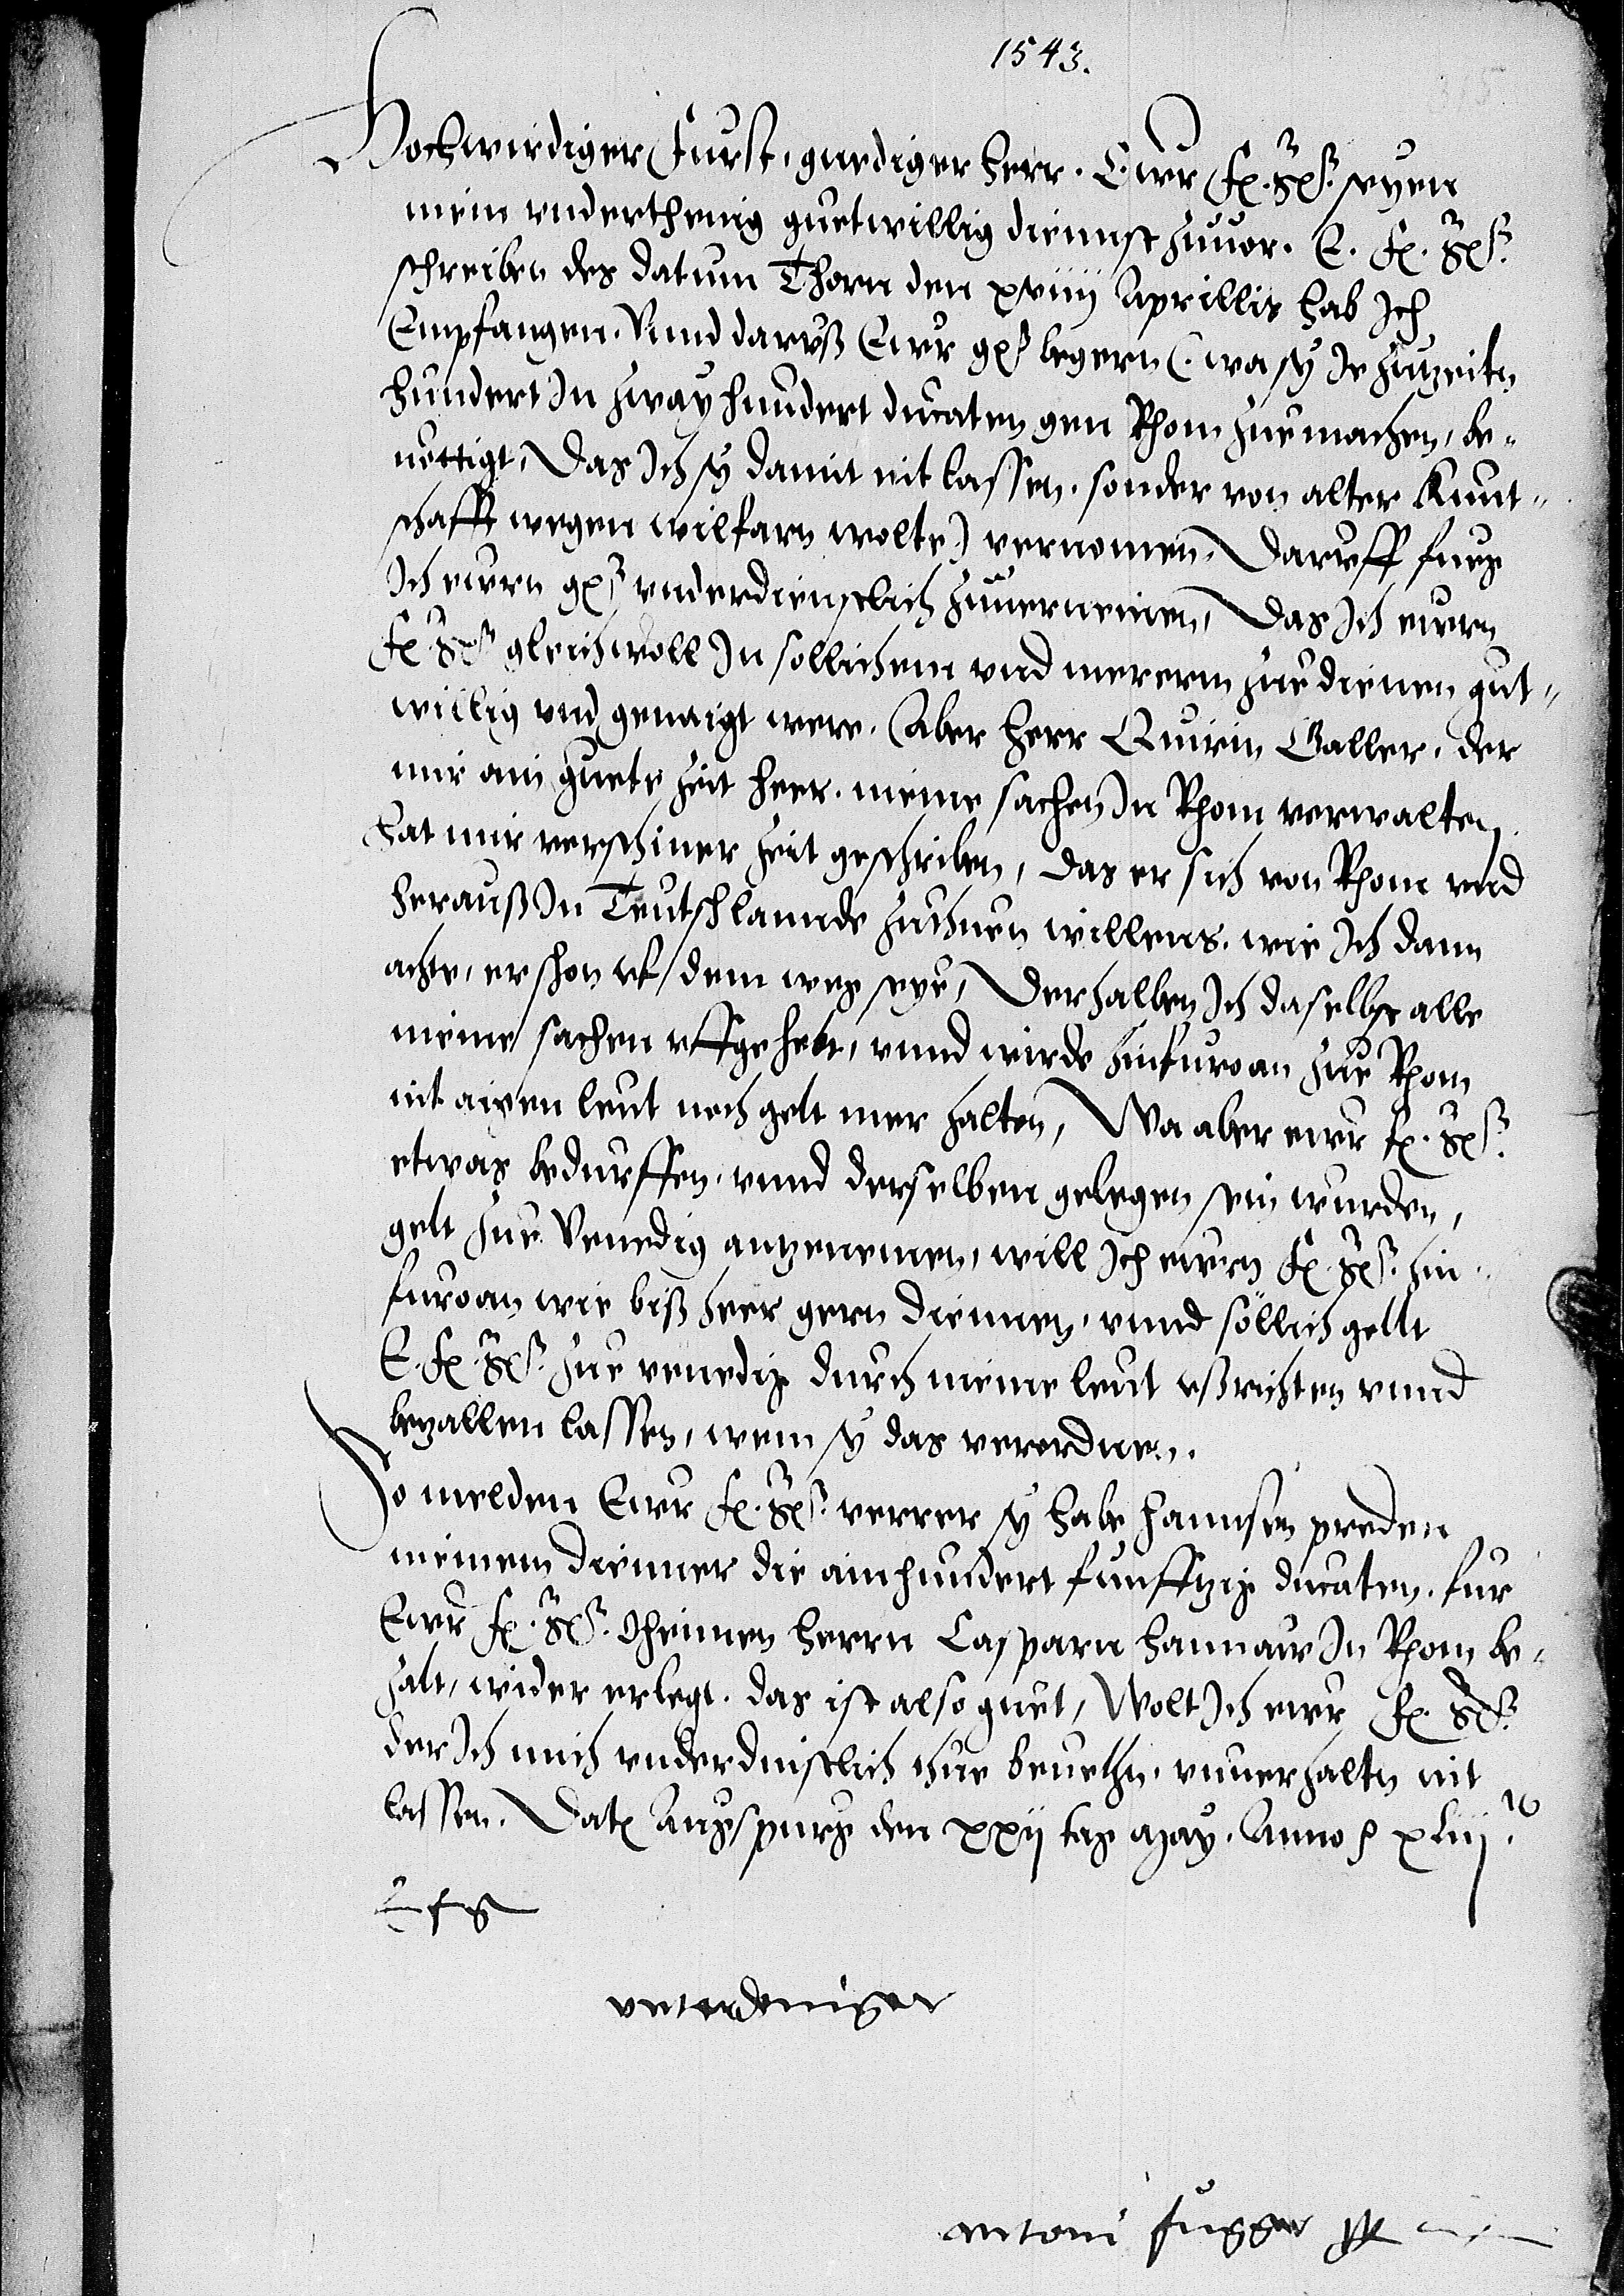 1543.
Hochwirdiger Furst, gnediger herr. Ewr fr. gn. seyen
mein underthenig guetwillig diennst zuuor. E. fr. gn.
schreiben des datum Thorn den xviiij Aprillis hab Ich
Empfangen. Unnd daruß Ewr gn. begern (wa sy Ir zuzeiten
hundert In zwayhundert ducaten gen Rhom zue machen, be-
nöttigt, Das Ich sy damit nit lassen, sonder von alter Kunt-
schafft wegen wilfarn wolte) vernomen, Daruff fueg
Ich ewrn gn. underdienstlich zuuernemen, Das Ich ewrn
fr. gn. gleichwoll In söllichem und mererm zue dienen gut-
willig und genaigt were. Aber herr Quirin Galler, der
mir ain guete zeit heer meine sachen In Rhom verwalten,
hat mir verschiner zeit geschriben, das er sich von Rhom und
herauß In Teutschlannde zuthuen willens, wie Ich dann
achte, er schon uf dem weg seye, Derhalben Ich daselbst alle
meine sachen uffgehebt, unnd wirde hinfuroan zue Rhom
nit aigen leut noch gelt mer halten, Wa aber ewr fr. gn.
etwas bedurffen, unnd derselben gelegen sein wurden,
gelt zue Venedig antzenemen, will Ich ewrn fr. gn. hin-
furoan wie biß heer gern diennen, unnd söllich gellt
E. fr. gn. zue venedig durch meine leut ußrichten unnd
bezallen lassen, wem sy das verordnen.
So melden Ewr fr. gn. verrer sy habe hannsen preden
meinem dienner die ainhundert funfftzig ducaten, fur
Ewr fr. gn. Oheimen herrn Casparn hannaw In Rhom be-
zalt, wider erlegt. das ist also guet, Wolt Ich ewr fr. gn.
der Ich mich underdinstlich thue beuelhen, unuerhalten nit
lassen. Dat. Augspurg den xxij tag May. Anno xliij.
E f g
unterdeniger
antoni fugger